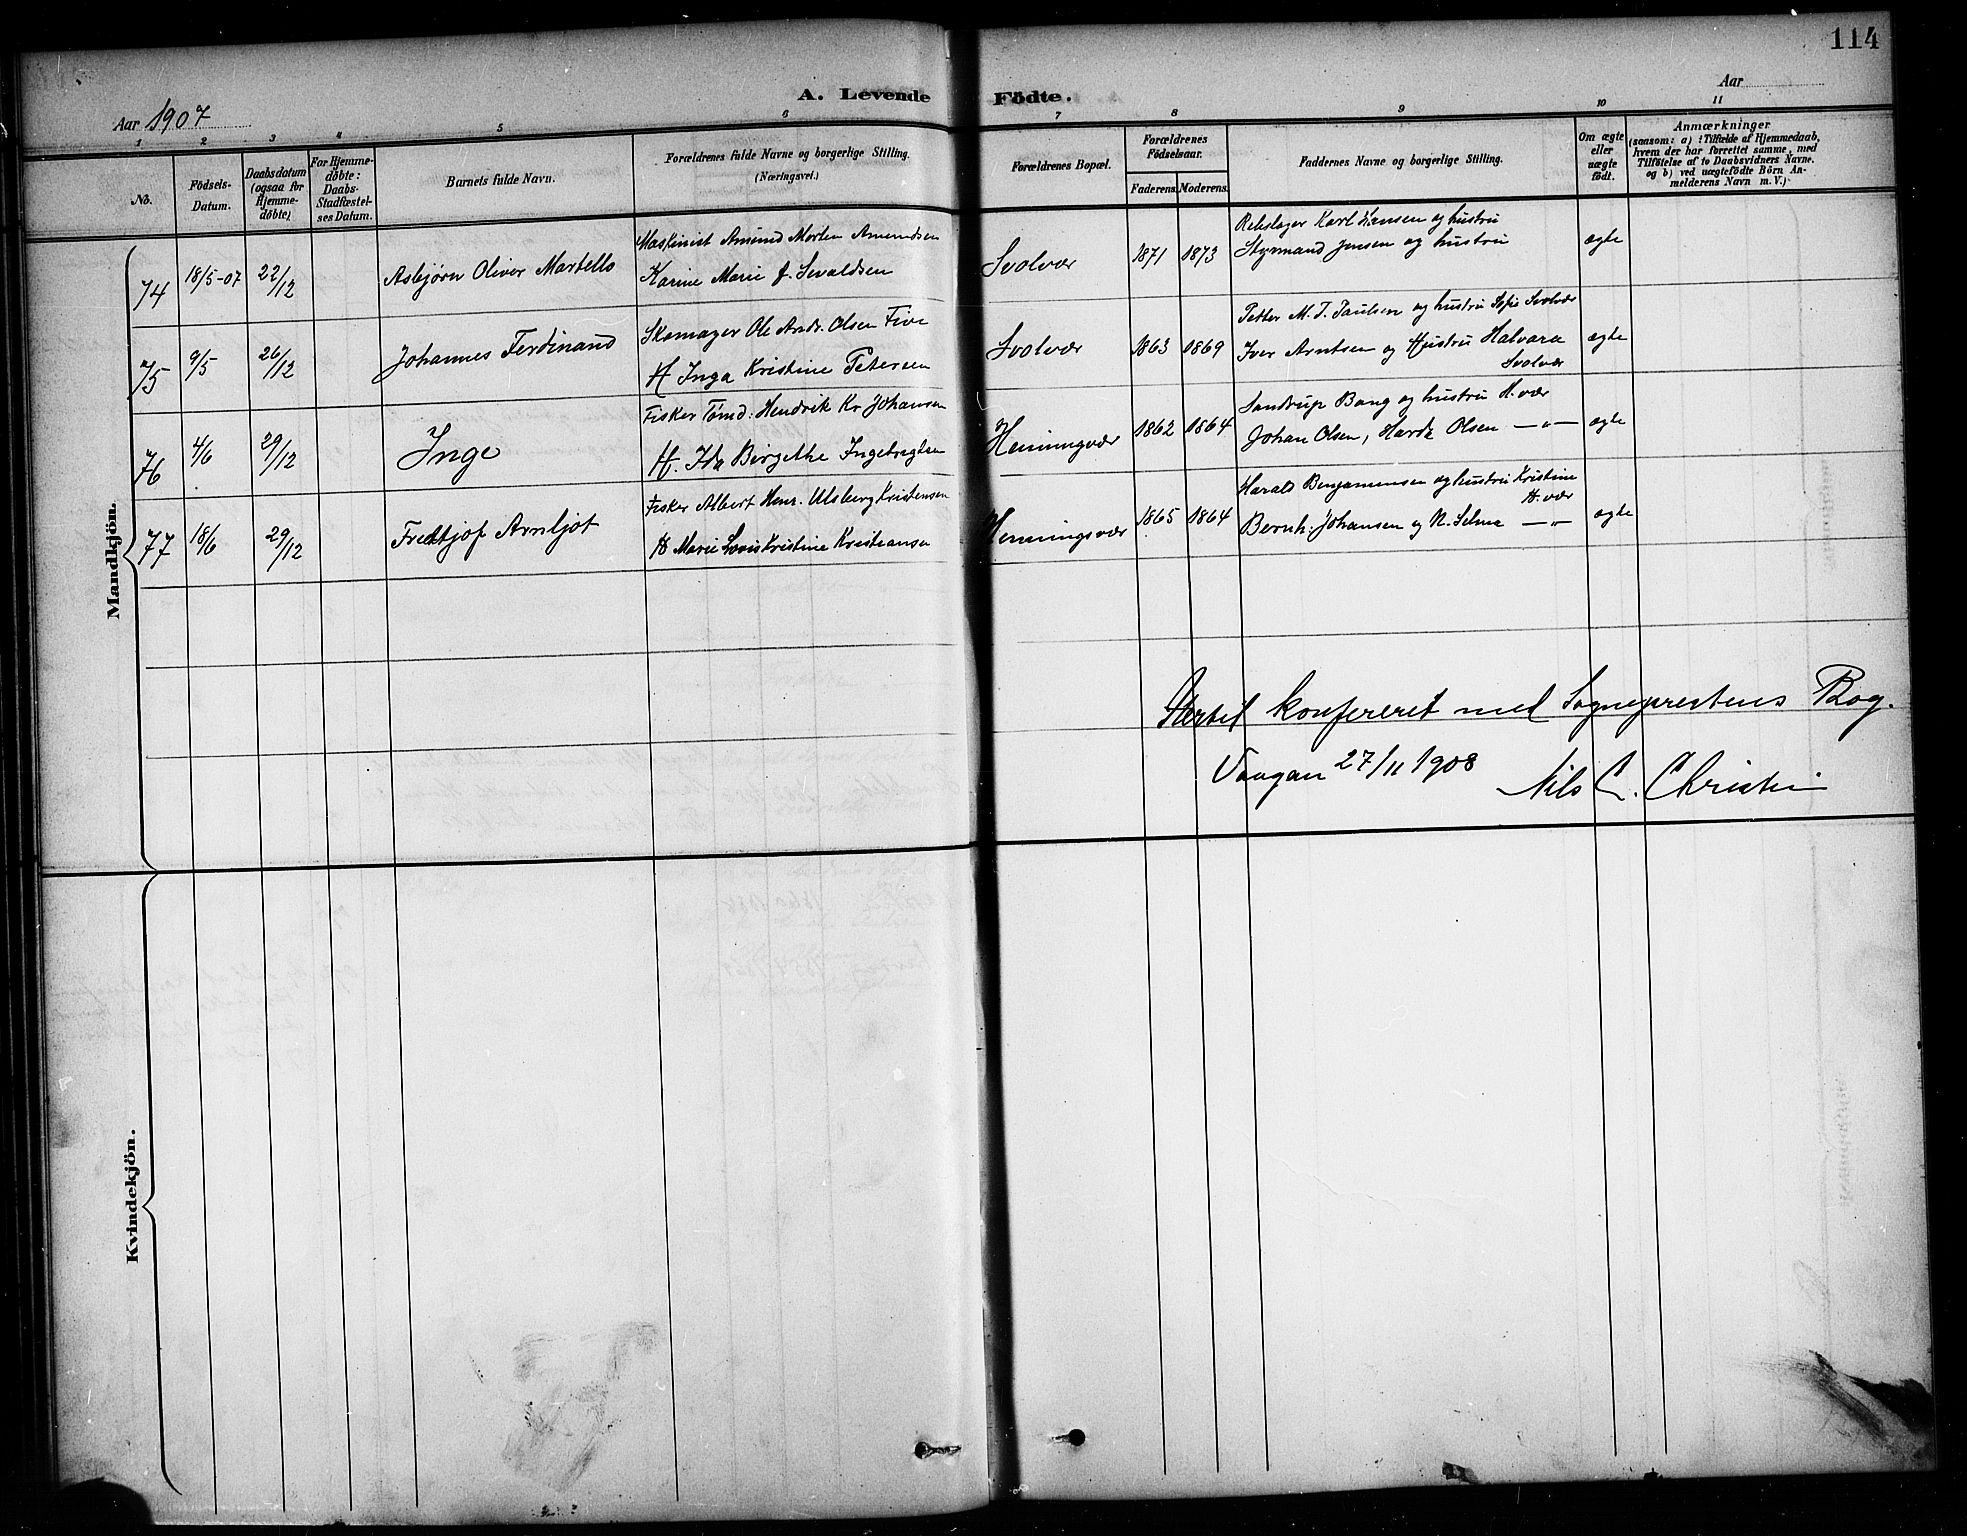 114
A. Levende Födte.
Aar 1907
Aar
1 2 3 4 5 6 7 8 9 10 11
No.
Födsels-Datum.
Daabsdatum (ogsaa for Hjemme-döbte)
For Hjemme-döbte: Daabs-Stadfæstel-ses Datum.
Barnets fulde Navn.
Forældrenes fulde Navne og borgerlige Stilling. (Næringsvei.)
Forældrenes Bopæl.
Forældrenes Födselsaar.
Faderens. Moderens.
Faddernes Navne og borgerlige Stilling.
Om ægte eller uægte födt.
Anmærkninger
(saasom: a) i Tilfælde af Hjemmedaab,
hvem der har forrettet samme, med
Tilföielse af to Daabsvidners Navne.
og b) ved uægtefödte Börn An-
melderens Navn m. V.)
Mandkjön.
74 18/5-07 22/12 Asbjørn Oliver Martello
Maskinist Amund Morten Amundsen
Karine Marie f. Sevaldsen
Svolvær 1871 1873
Rebslager Karl Hansen og hustru
Styrmand Jensen og hustru
ægte
75 9/5 26/12 Johannes Ferdinand
Skomager Ole Andr. Olsen Five
H Inga Kristine Petersen
Svolvær 1863 1869
Petter M. J. Paulsen og hustru Sofie Svolvær
Iver Arntsen og Hustru Halvara
Svolvær
ægte
76 4/6 29/12 Inge
Fisker Tømd: Hendrik Kr Johansen
H. Ida Birgethe Ingebrigtsen
Henningvær 1862 1864
Sandrup Bang og hustru H.vær
Johan Olsen, Olsen —„—
ægte
77 18/6 29/12 Fredtjof Arnljot
Fisker Albert Henr. Ulsberg Kristensen
H Marie Lovis Kristine Kristiansen
Henningsvær 1865 1864
Harald Benjaminsen og hustru Kristine
H.vær
Bernh. Johansen og H. Selma —„—
ægte
konfereret med Sogneprestens Bog.
Vaagan 27/11 1908 Nils C. Christi
Kvindekjön.